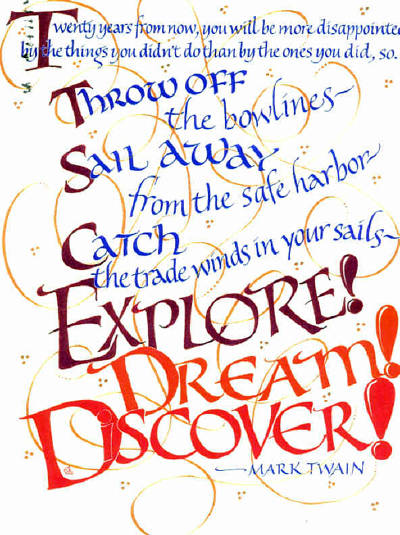 Twenty years from now, you will be more disappointed
by the things you didn't do than by the ones you did, so.
Throw off
the bowlines~
Sail away
from the safe harbor~
Catch
the trade winds in your sails~
Explore!
Dream!
Discover!
—Mark Twain